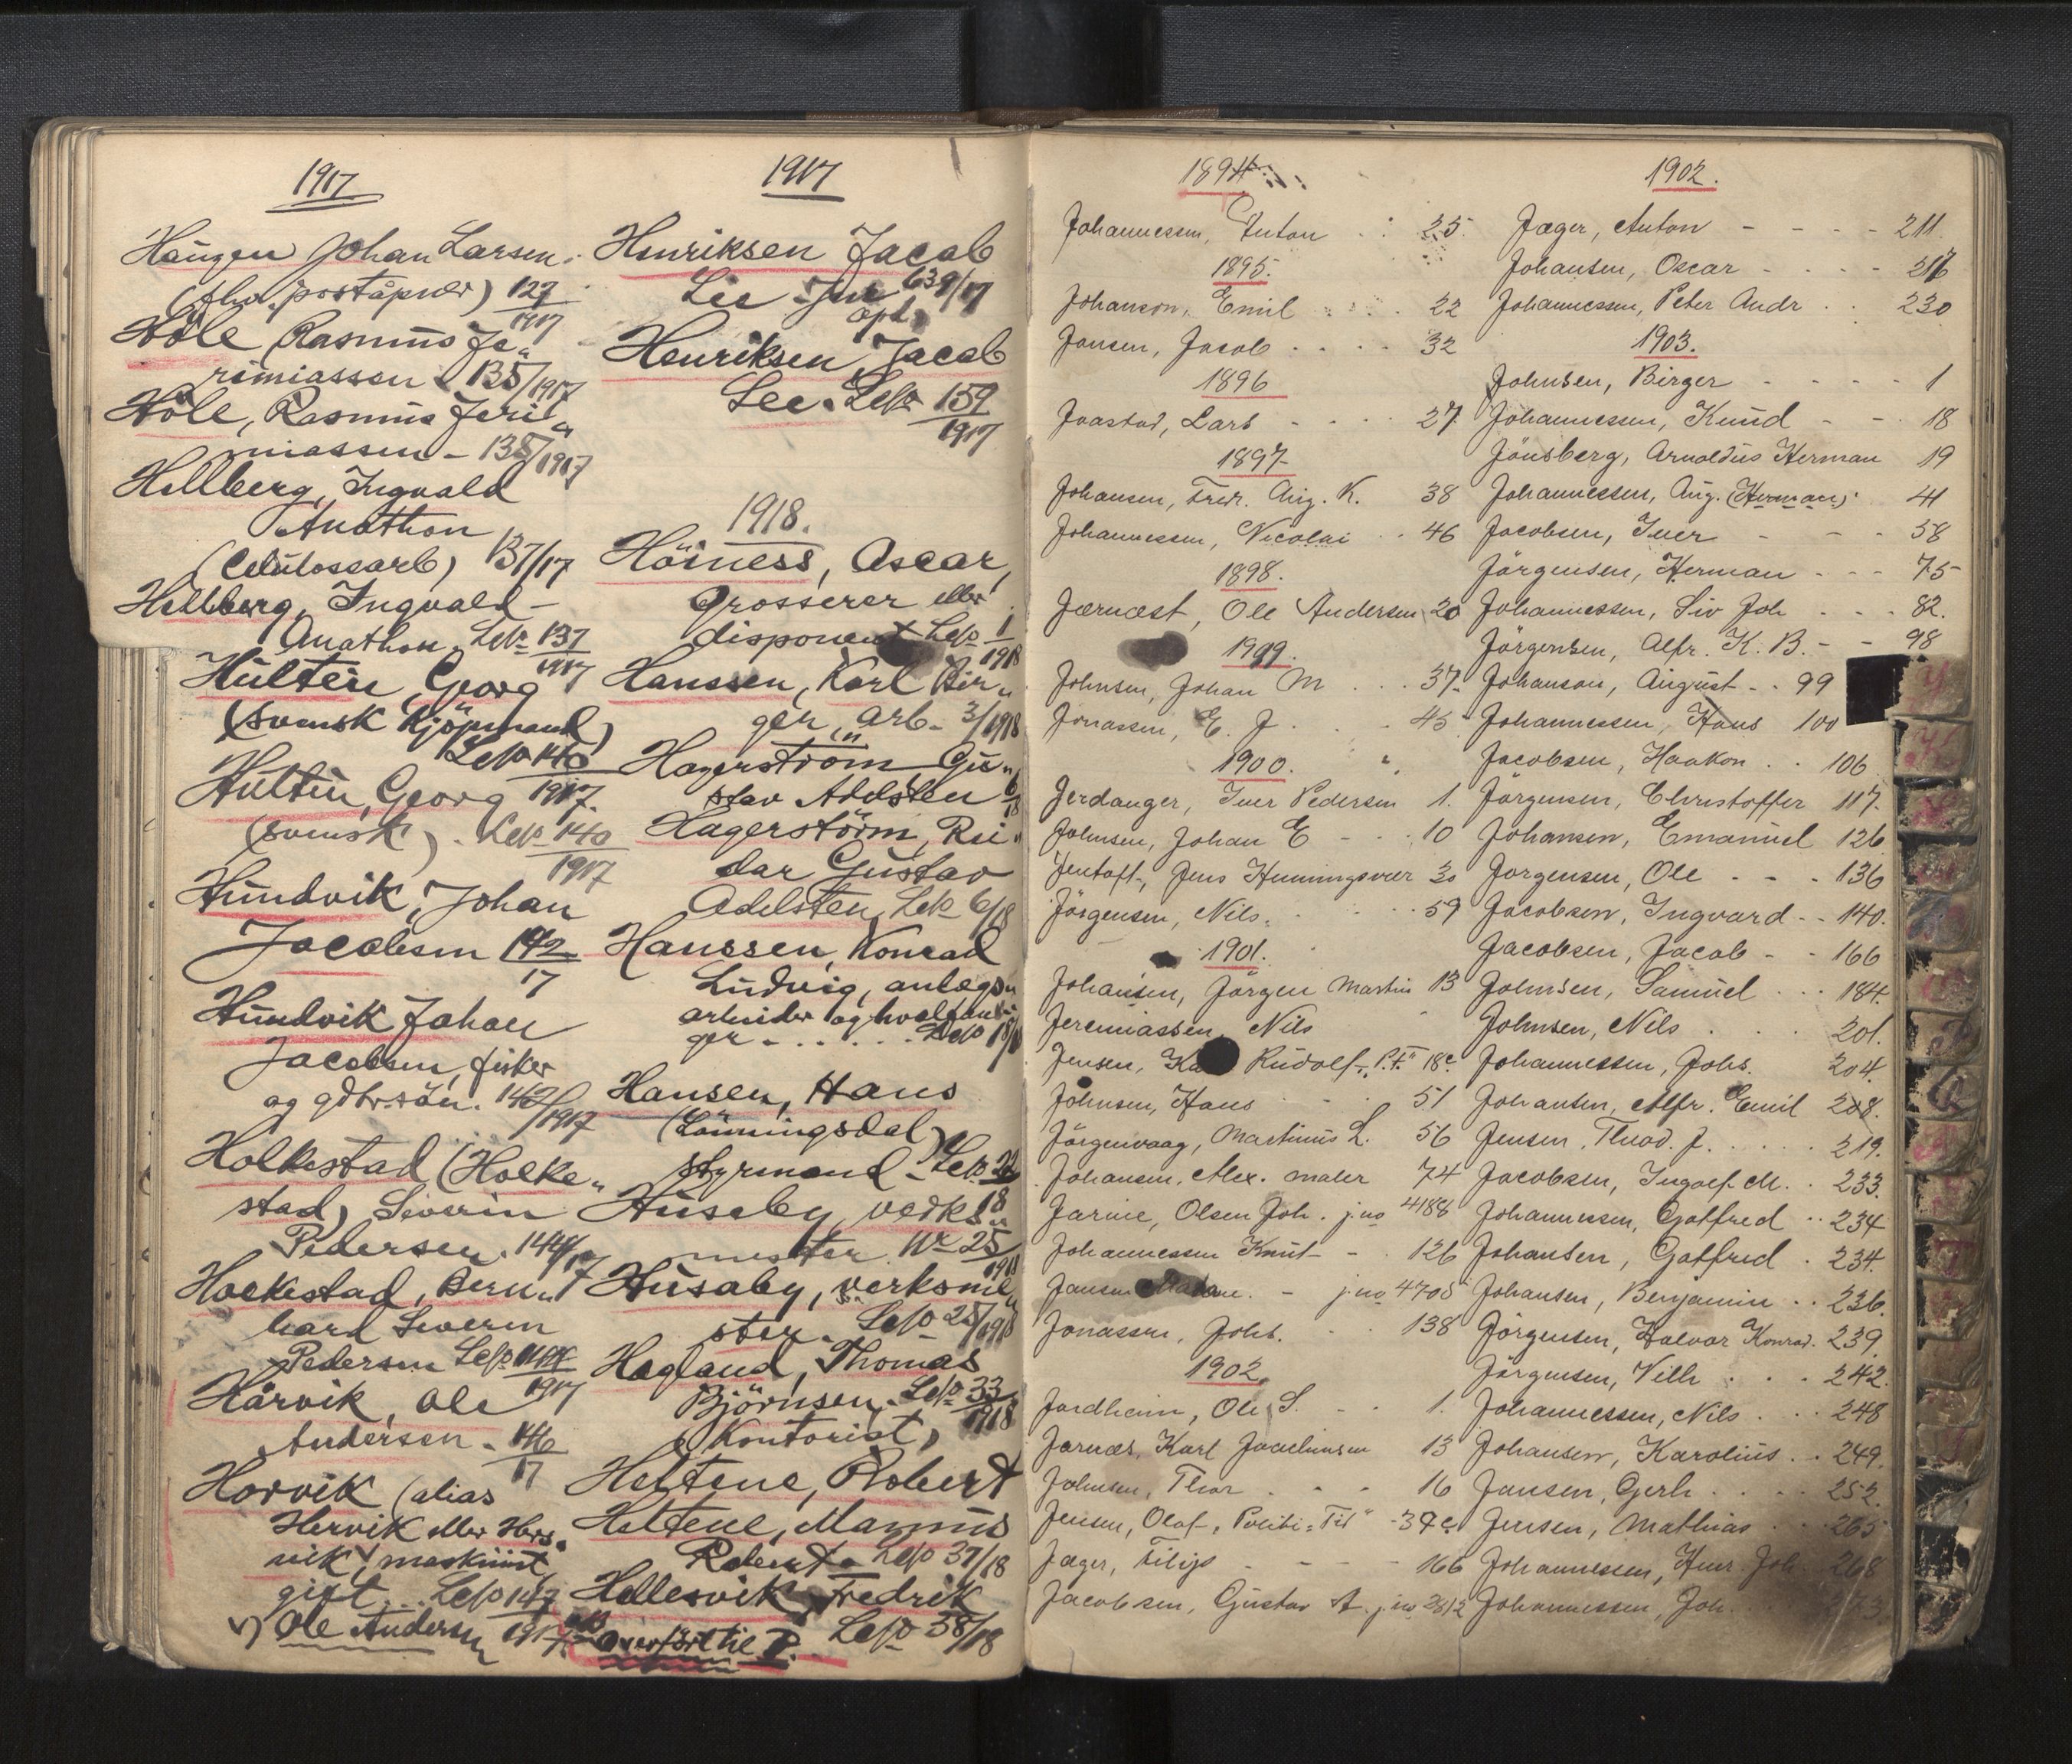 1917
Haugen Johan Larsen
(fhv. poståpner) 127/1917
Hole Rasmus Je„
rimiassen 135/1917
Hole, Rasmus Jeri„
miassen - 135/1917
Hellberg, Ingvald
Anathon
(Celulosearb) 137/17
Hellberg, Ingvald
Anathon Lep 137/1917
Hultin, Georg
(svensk Kjöpmand)
Lep 140/1917.
Hultin, Georg
(svensk). Lep 140/1917
Hundvik, Johan
Jacobsen 142/17
Hundvik Johan
Jacobsen, fisker
og gdbr.sön. 142/1917
Holkestad (Holke„
stad) Severin
Pedersen. 144/17
Holkestad, Bern„
hard Severin
Pedersen Lep 144/1917
Hårvik, Ole
Andersen - 146/17
Horvik (alias
Hervik eller Hers„
vik, maskinist,
gift... Lep 147/1917.
Ole Andersen
1917
Henriksen Jacob
Lie 639/17
Henriksen, Jacob
Lee. Lep 159/1917
1918.
Höiness, Oscar,
Grosserer eller
disponent Lep 1/1918
Hanssen, Karl Bir„
ger, arb. 3/1918
Hagerström Gu„
stav Adelsten 6/18
Hagerström, Rei„
dar Gustav
Adelsten, Lep 6/18
Hanssen, Konrad
Ludvig, anlægs„
arbeider og hvalfan„
ger - . . . . . Lep 18/18
Hansen, Hans
(Lönningsdal)
styrmand - Lep 22/18
Husaby, verks„
mester Nr 25/1918
Husaby, verksme„
ster. Lep 25/1918
Hagland, Thomas
Björnsen. Lep 33/1918
(Kontorist)
Heltene, Robert
Heltene, Magnus
Robert - Lep 37/18
Hellesvik, Fredrik
Lep 38/18
Overfört til P.
1894
Johannessen, Anton . : 25.
1895.
Johanson, Emil . . . 22
Jansen, Jacob . . . . 32
1896
Jaastad, Lars - - . . 27
1897
Johansen, Fredr. Aug. K. 38
Johannessen, Nicolai . . 46
1898.
Jærnæst, Ole Andersen 20
1899.
Johnsen, Johan M . . . 37.
Jonassen, E. J. . . . 45
1900.
Jerdanger, Iver Pedersen 1.
Johnsen, Johan E - - . . 10
Jentoft, Jens Henningsvær 30
Jörgensen, Nils. . . . . 59
1901.
Johansen, Jörgen Martin 13
Jeremiassen, Nils
Jensen, Rudolf, P.t. 18c
Johnsen, Hans . . . 51
Jörgenvaag, Martinus L. 56
Johansen, Alex. maler 74
Jarvie, Olsen Joh. j.no 4188
Johannessen Knut - - . 126
Jansen - j.no 4705
Jonassen, Johs. . . 138
1902.
Jordheim, Ole S. - . 1.
Jarnæs, Karl Joachimsen 13
Johnsen, Thor . . . 16
Jensen, Olaf, "Politi-Tit" - 39c
Jæger, Filip - - - - 166
Jacobsen, Gustav A. j.no 2812
1902.
Jæger, Anton - - - - 211.
Johansen, Oscar - . . . 216
Johannessen, Peter Andr . . 230
1903.
Johnsen, Birger - . . . 1
Johannessen, Knud - - . 18
Jönsberg, Arnoldus Herman 19
Johannessen, Aug. (Herman) . 41
Jacobsen, Iver - - - 58
Jörgensen, Herman - - - 75
Johannessen, Siv Joh . . . 82.
Jörgensen, Alfr. K. B. - - 98
Johanson, August - . . 99
Johannessen, Hans 100
Jacobsen, Haakon . . 106
Jörgensen, Christoffer 117.
Johansen, Emanuel 126
Jorgensen, Ole - - . 136
Jacobsen, Ingvard - - 140.
Jacobsen, Jacob - - 166
Johnsen, Samuel . . . 184.
Johnsen, Nils . . . 201.
Johannessen, Johs. 204.
Johansen, Alfr. Emil 208.
Jensen, Theod. J. . . . . 219.
Jacobsen, Ingolf M. . 233.
Johannessen, Gotfred . . 234
Johansen, Gotfred . 234.
Johansen, Benjamin . . 236.
Jörgensen, Halvor Konrad. 239.
Jörgensen, Vilh . . . 242.
Johannessen, Nils . . . 248
Johansen, Karolius . . 249.
Jansen, Gerh . . . . 252.
Jensen, Mathias . . . 265
Johannessen, Henr. Joh. 268
Johannessen, Joh.